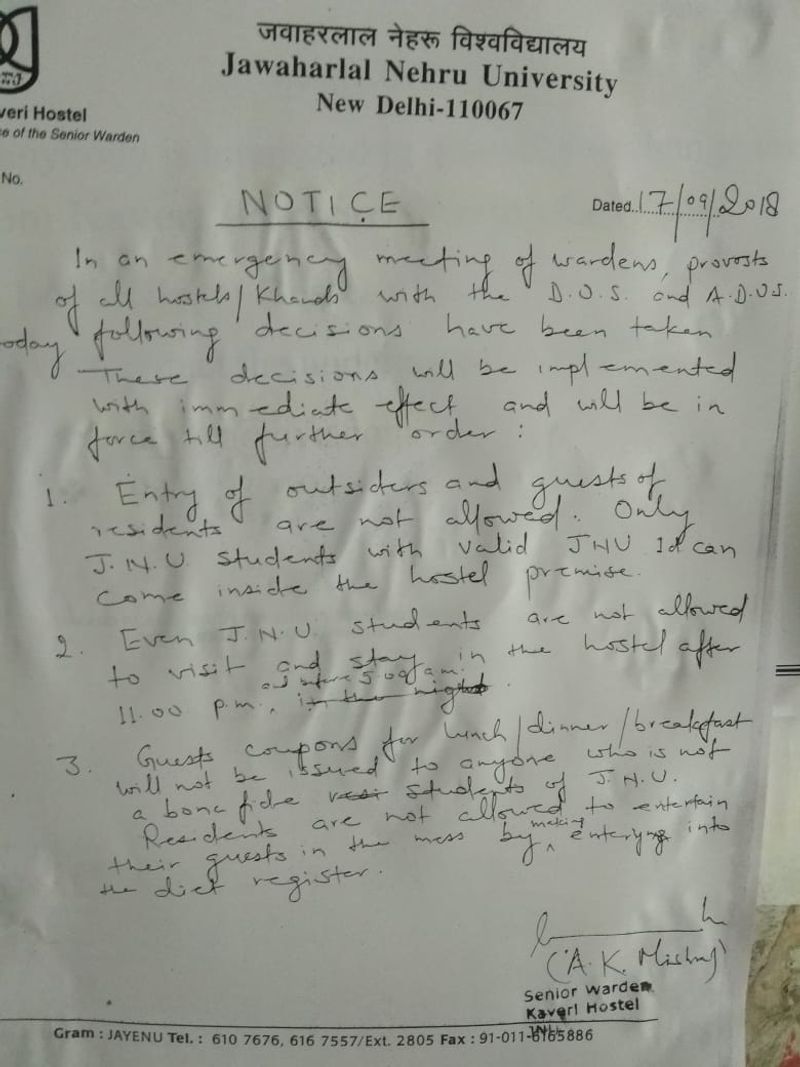 जवाहरलाल नेहरू विश्वविद्यालय
Jawaharlal Nehru University
New Delhi-110067
veri Hostel
e of the Senior Warden
No.
NOTICE
Dated..17/09/2018
In an emergency meeting of wardens, provosts
of all hostels/Khands with the D.O.S. and A.D.O.S.
oday following decisions have been taken
These decisions will be implemented
with immediate effect and will be in
force till further order :
1. Entry of outsiders and guests of
residents are not allowed. Only
J.N.U. Students with valid JNU Id can
come inside the hostel premise.
2. Even J.N.U. students are not allowed
to visit and stay in the hostel after
and before 5.00 am.
11.00 p.m. in the night.
3. Guests coupons for lunch/dinner/breakfast
will not be issued to anyone who is not
a bona fide students of J.N.U.
Residents are not allowed to entertain
their guests in the mess by making enterying into
the diet register.
(A.K. Mishra)
Senior Warden
Kaveri Hostel
JNU
Gram : JAYENU Tel. : 610 7676, 616 7557/Ext. 2805 Fax : 91-011-6165886